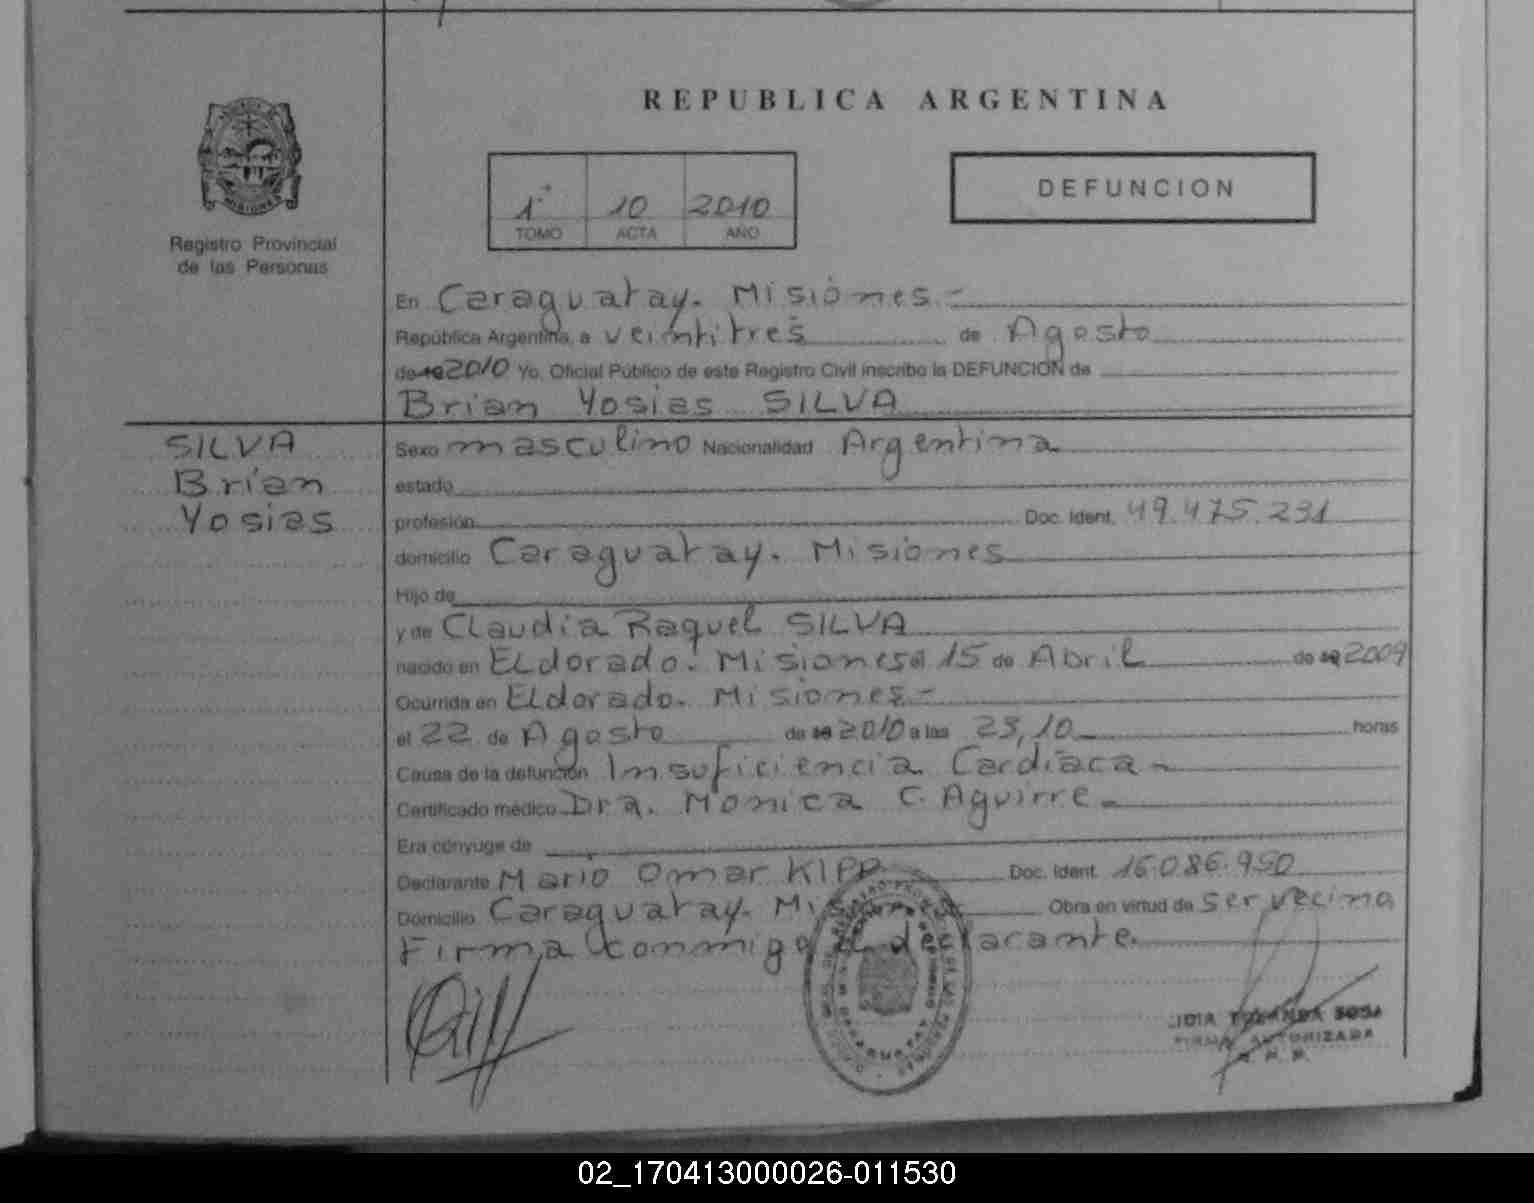 REPUBLICA ARGENTINA
MISIONES
Registro Provincial
de las Personas
1º 10 2010
TOMO ACTA AÑO
DEFUNCION
En Caraguatay. Misiones.-
República Argentina, a veintitres de Agosto
de 19 2010 Yo. Oficial Público de este Registro Civil inscribo la DEFUNCION de
Brian Yosias SILVA
SILVA
Brian
Yosias
Sexo masculino Nacionalidad Argentina
estado
profesión Doc. Ident. 49.475.231
domicilio Caraguatay. Misiones
Hijo de
y de Claudia Raquel SILVA
nacido en Eldorado. Misiones el 15 de Abril de 19 2009
Ocurrida en Eldorado. Misiones-
el 22 de Agosto de 19 2010 a las 23,10 horas
Causa de la defunción Insuficiencia Cardiaca-
Certificado médico Dra. Monica C. Aguirre-
Era cónyuge de
Declarante Mario Omar KIPP Doc. Ident. 16.086.950
Domicilio Caraguatay. Misiones Obra en virtud de ser vecino
Firma conmigo el declarante.
YOLANDA SOSA
FIRMA AUTORIZADA
02_170413000026-011530